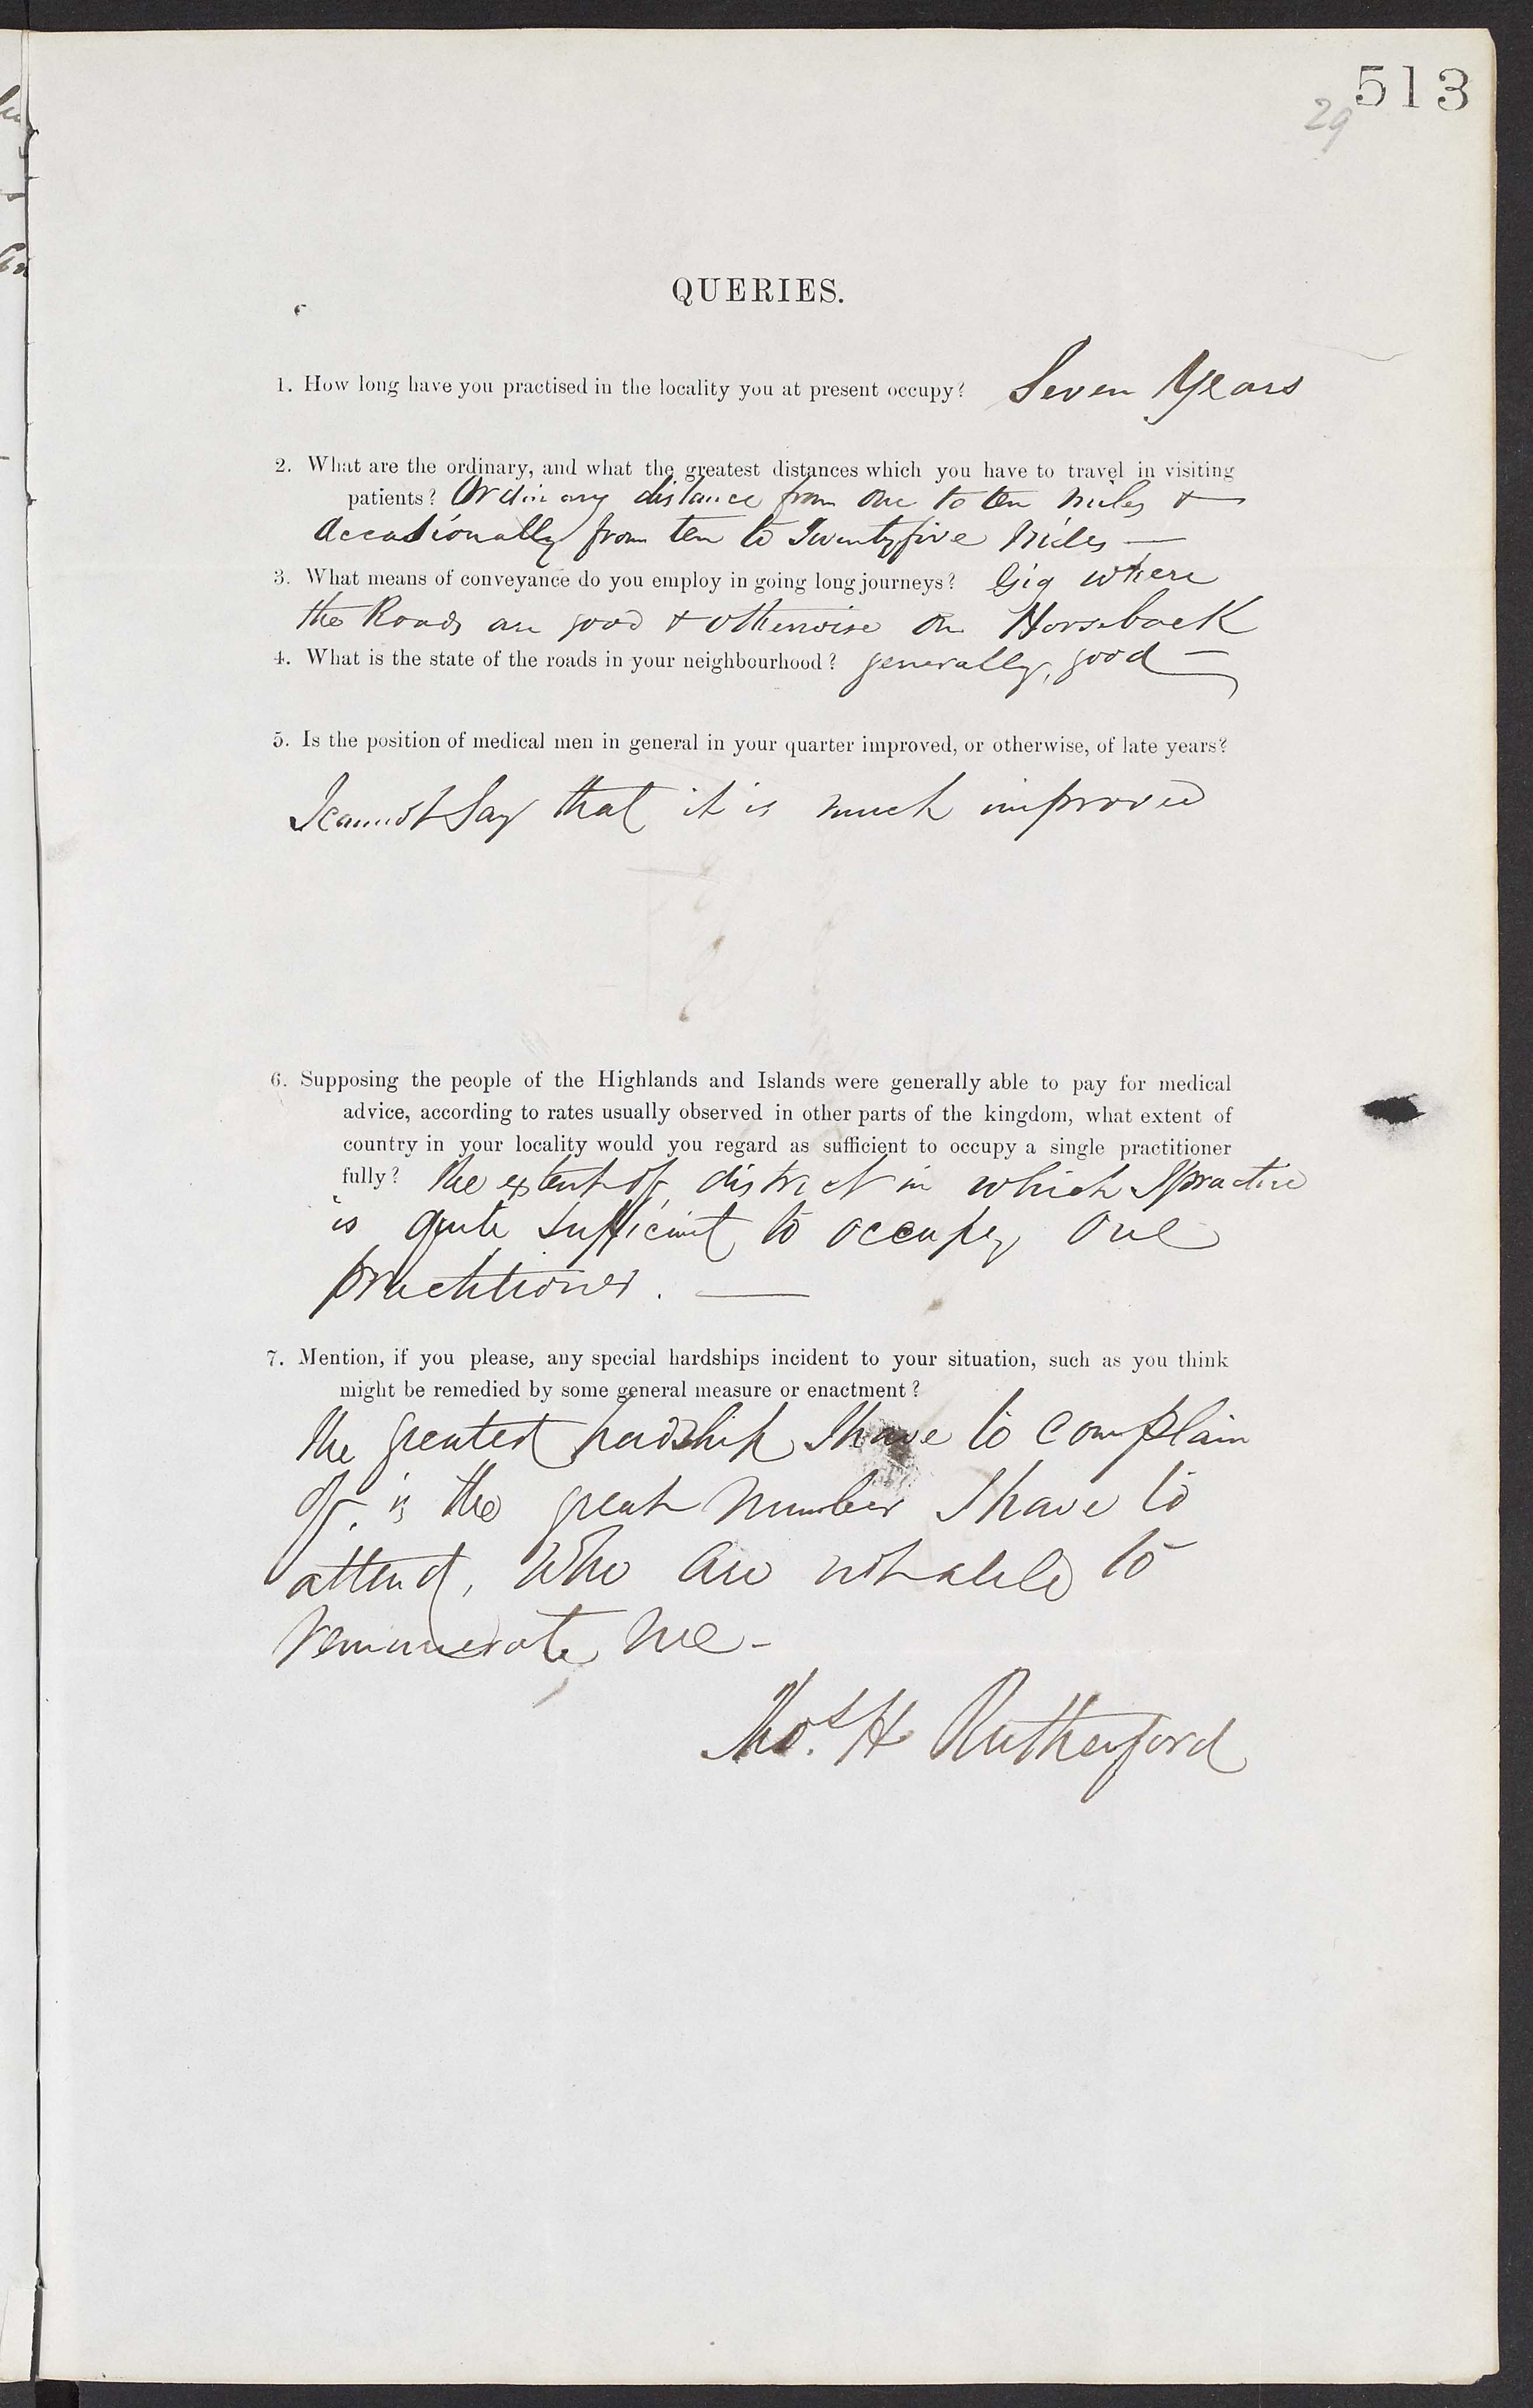 513
29
QUERIES.
1. How long have you practised in the locality you at present occupy? Seven Years
2. What are the ordinary, and what the greatest distances which you have to travel in visiting
patients? Ordinary distance from one to ten miles &
occasionally from ten to Twentyfive Miles —
3. What means of conveyance do you employ in going long journeys? Gig where
the Roads are good & otherwise on Horseback
4. What is the state of the roads in your neighbourhood? generally, good —
5. Is the position of medical men in general in your quarter improved, or otherwise, of late years?
I cannot say that it is much improved
6. Supposing the people of the Highlands and Islands were generally able to pay for medical
advice, according to rates usually observed in other parts of the kingdom, what extent of
country in your locality would you regard as sufficient to occupy a single practitioner
fully? The extent of district in which I practice
is quite sufficient to occupy one
practitioner. —
7. Mention, if you please, any special hardships incident to your situation, such as you think
might be remedied by some general measure or enactment?
The greatest hardship I have to complain
of, is the great number I have to
attend, who are not able to
remunerate me -
Thos. H Rutherford